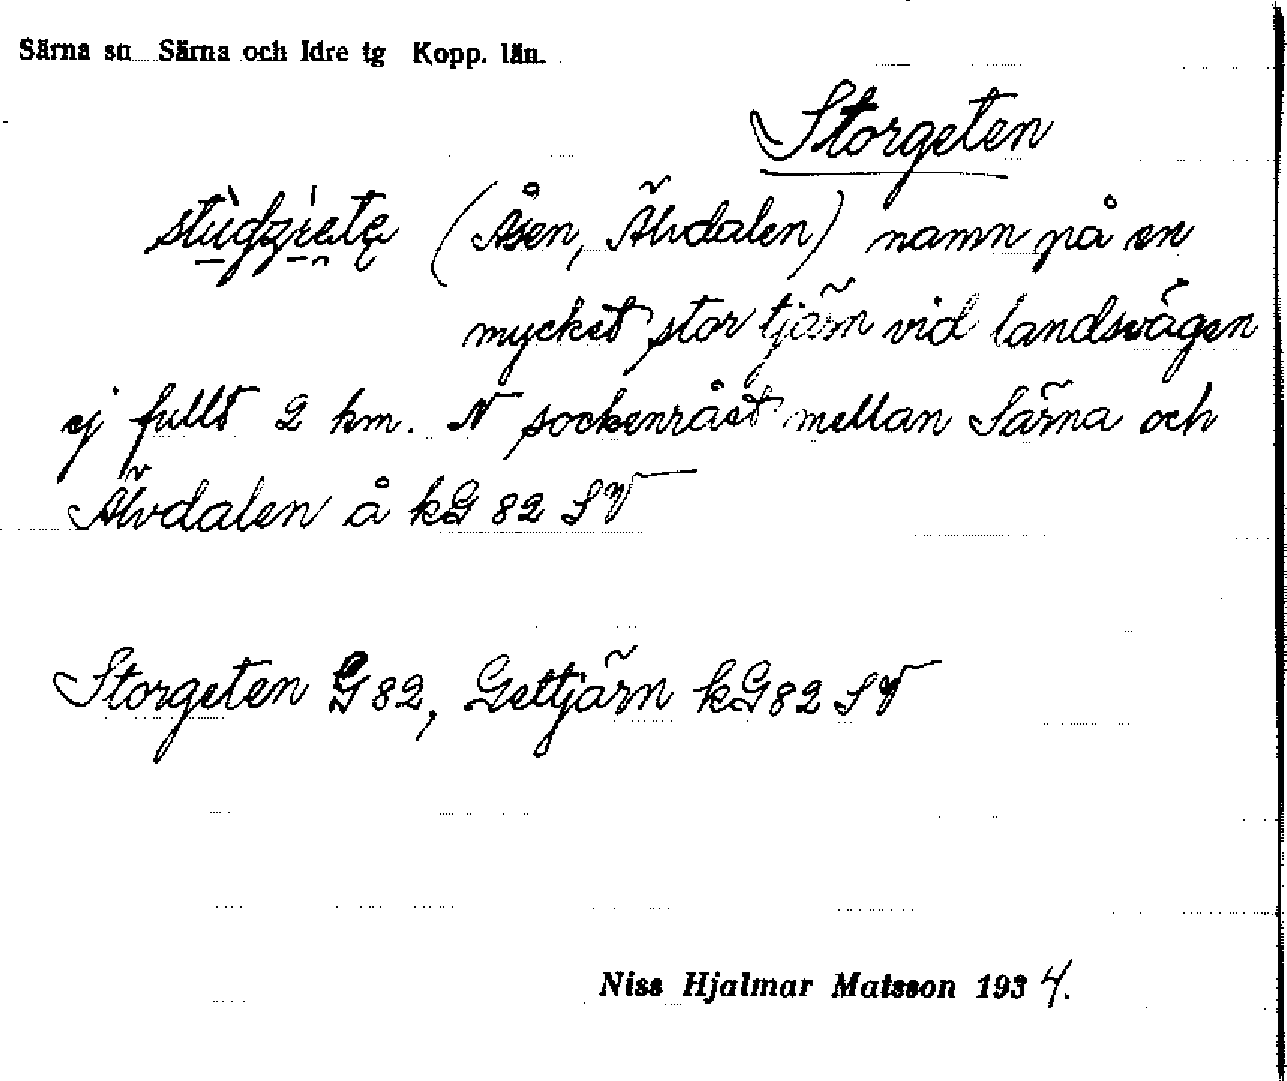 Särna sn Särna och Idre tg Kopp. län.
Storgeten
(Åsen, Älvdalen) namn på en
mycket stor tjärn vid landsvägen
ej fullt 2 km. N sockenrået mellan Särna och
Älvdalen å kG 82 SV
Storgeten G 82, Gettjärn kG 82 SV
Niss Hjalmar Matsson 1934.